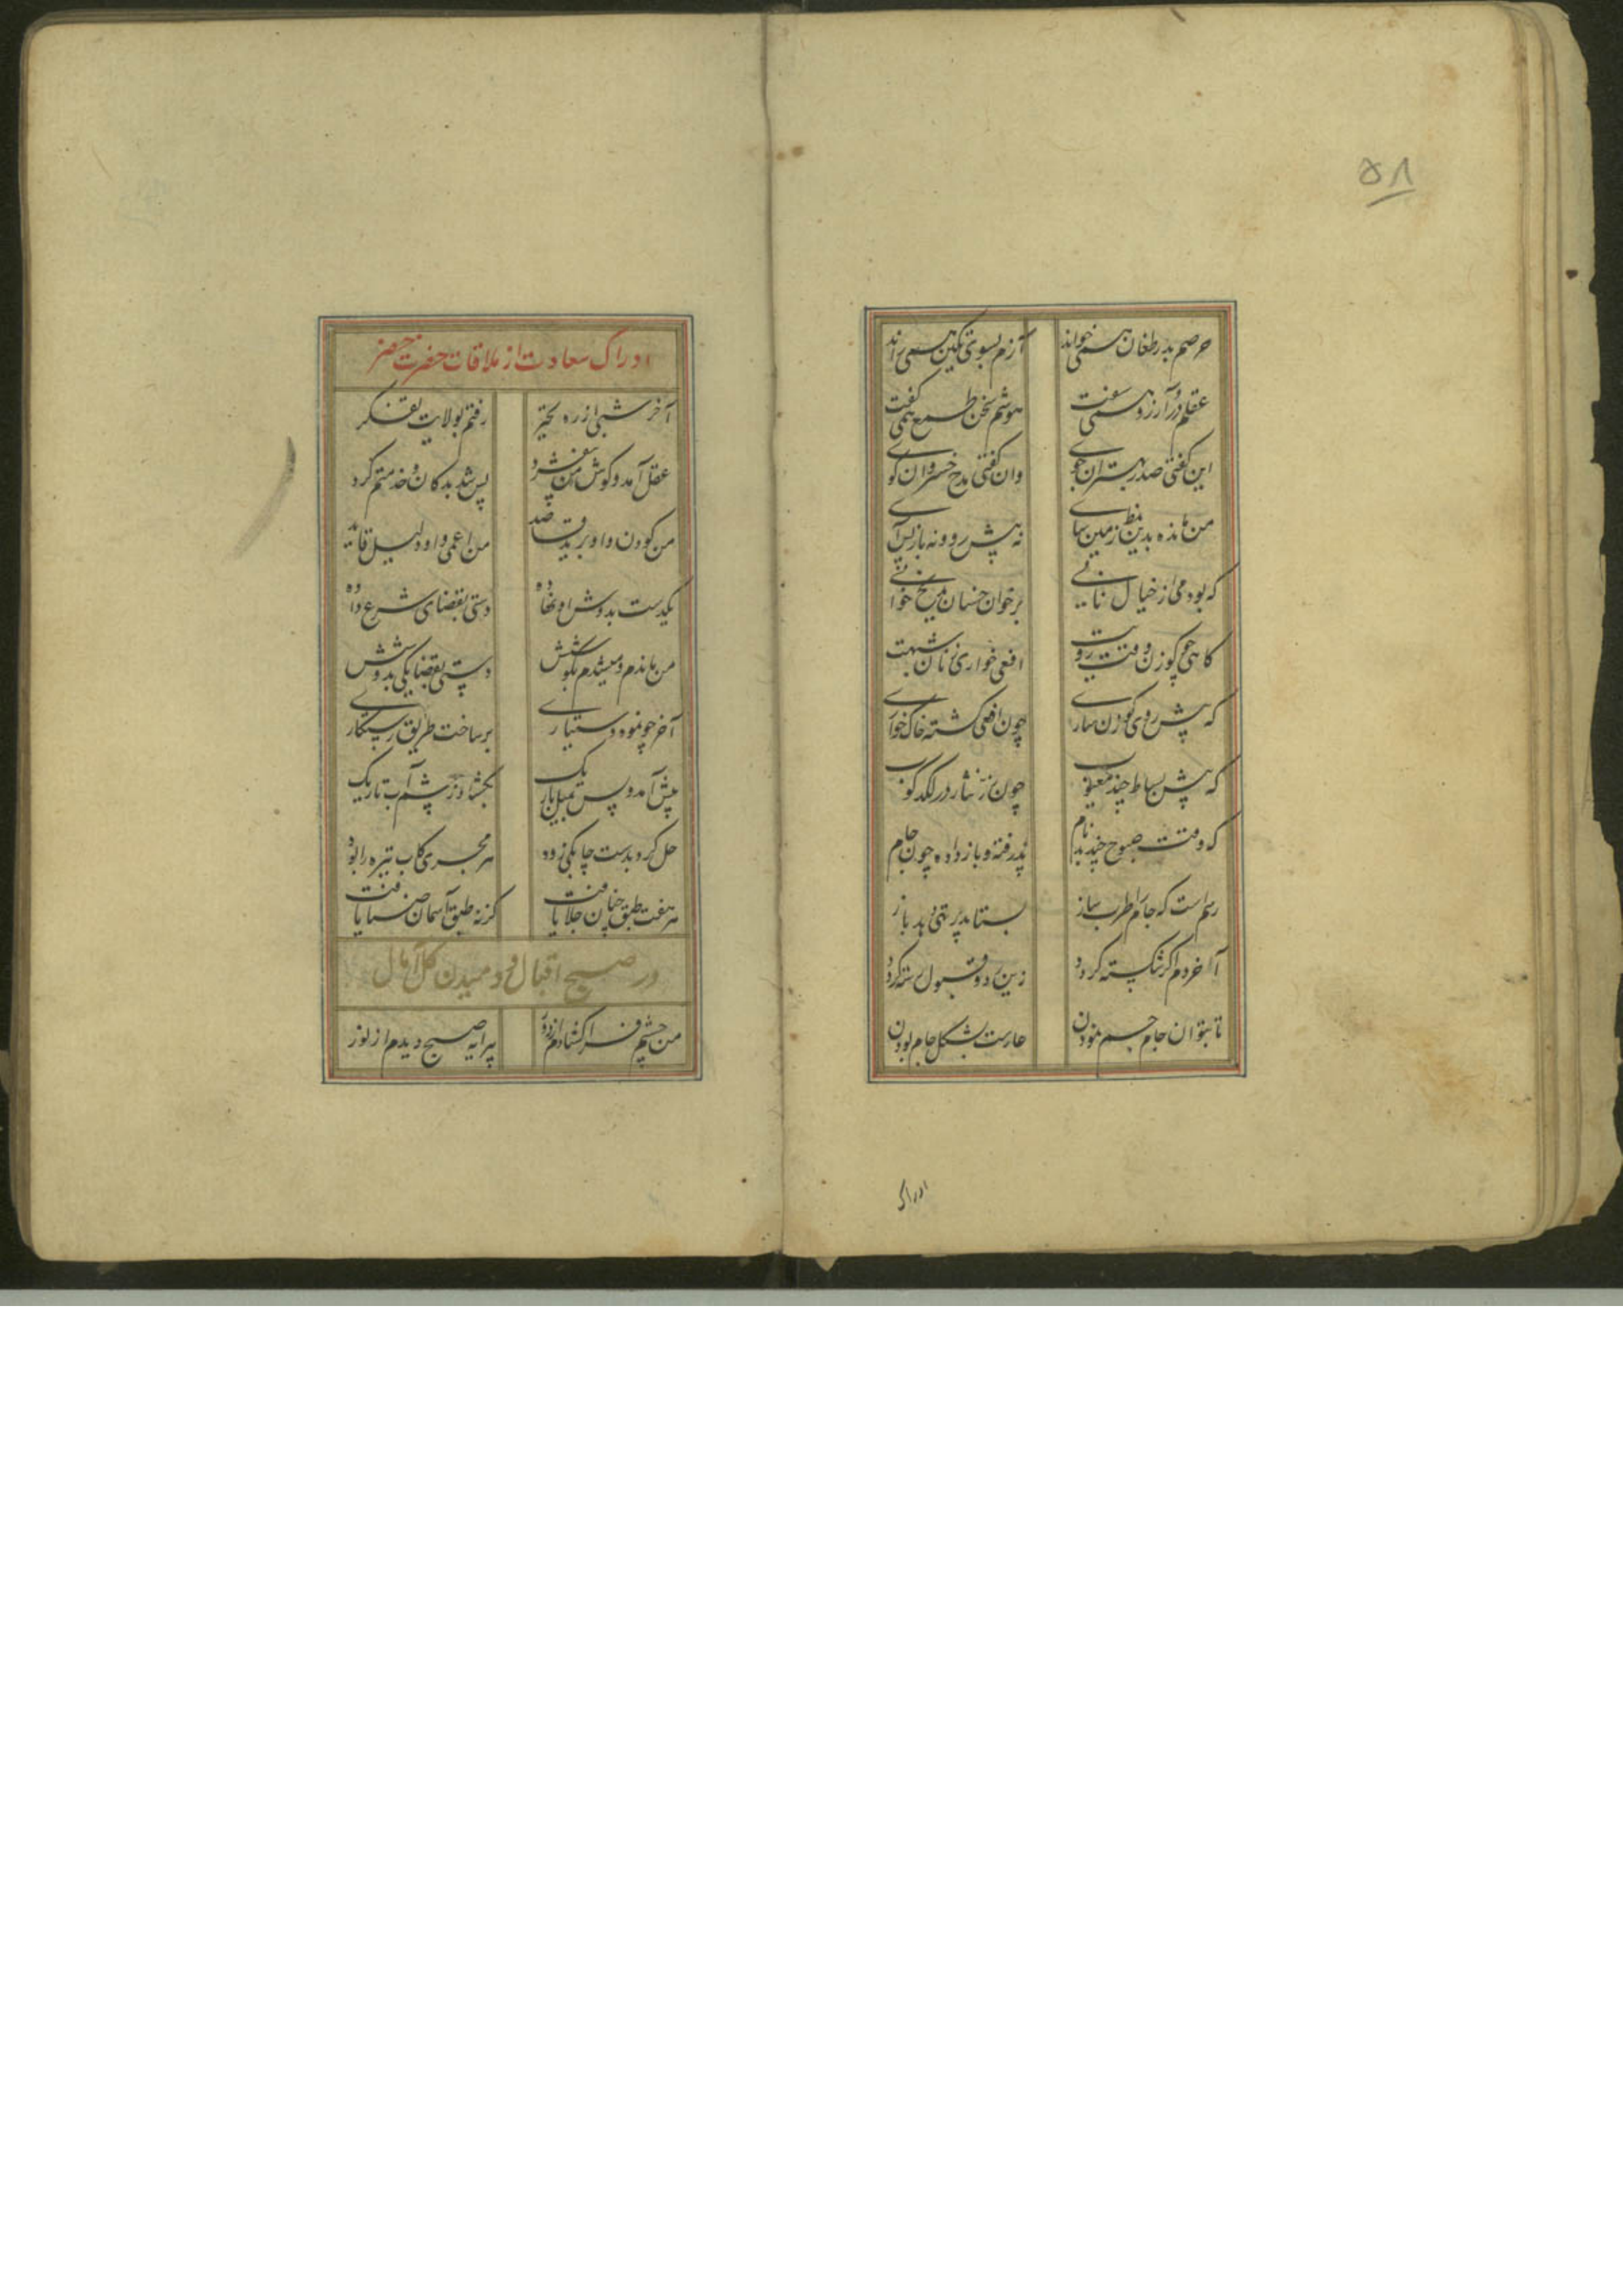 ۵۸
حرصم بدر طغان همی خواند آزم بسوی تکین همی راند
عقلم در آرزو همی سفت هوشم سخن طمع همی گفت
این گفتی صدر مهتران جوی وان گفتی مدح خسروان گوی
من مانده بدین نمط زمین سای نه پیش رو و نه باز پس آی
که بودمی از خیال نانی برخوان خسان مدیح خوانی
گاهی چو گوزن وقت رویت افعی خواری ز نان شبهت
که پیش روی گوزن ساری چون افعی گشته خاک خواری
که پیش بساط چند معیوب چون نرد نثار در لگدکوب
که وقت صبوح چند بدنام پذرفته و باز داده چون جام
رسم است که جام را طرب ساز بستاند پر تهی دهد باز
آخردم اگر شکسته گردد زین رد و قبول رسته گردد
تا بتوان جام جسم نمودن عارست بشکل جام بودن
ادراک
ادراک سعادت از ملاقات حضرت خضر
آخر شبی از ره تحیر رفتم بولایت تفکر
عقل آمد و گوش من بیفشرد پس شد بدکان و خدمتم کرد
من کودن و او برید قاصد من اعمی و او دلیل قائد
یکدست بدوش او نهاده دستی بقضای شرع داده
من ماندم و میشدم بکوشش دستی بقضا یکی بدوشش
آخر چو نمود دستیاری برساخت طریق رستگاری
پیش آمد و پس بمیل باریک بگشاد ز چشم آب تاریک
حل کرد بدست چابکی زود هر مجری کاب تیره را بود
هر هفت طبق چنان جلا یافت کز نه طبق آسمان ضیا یافت
در صبح اقبال و دمیدن گل آمال
من چشم فرا گشادم از دور پیرایه صبح دیدم از نور